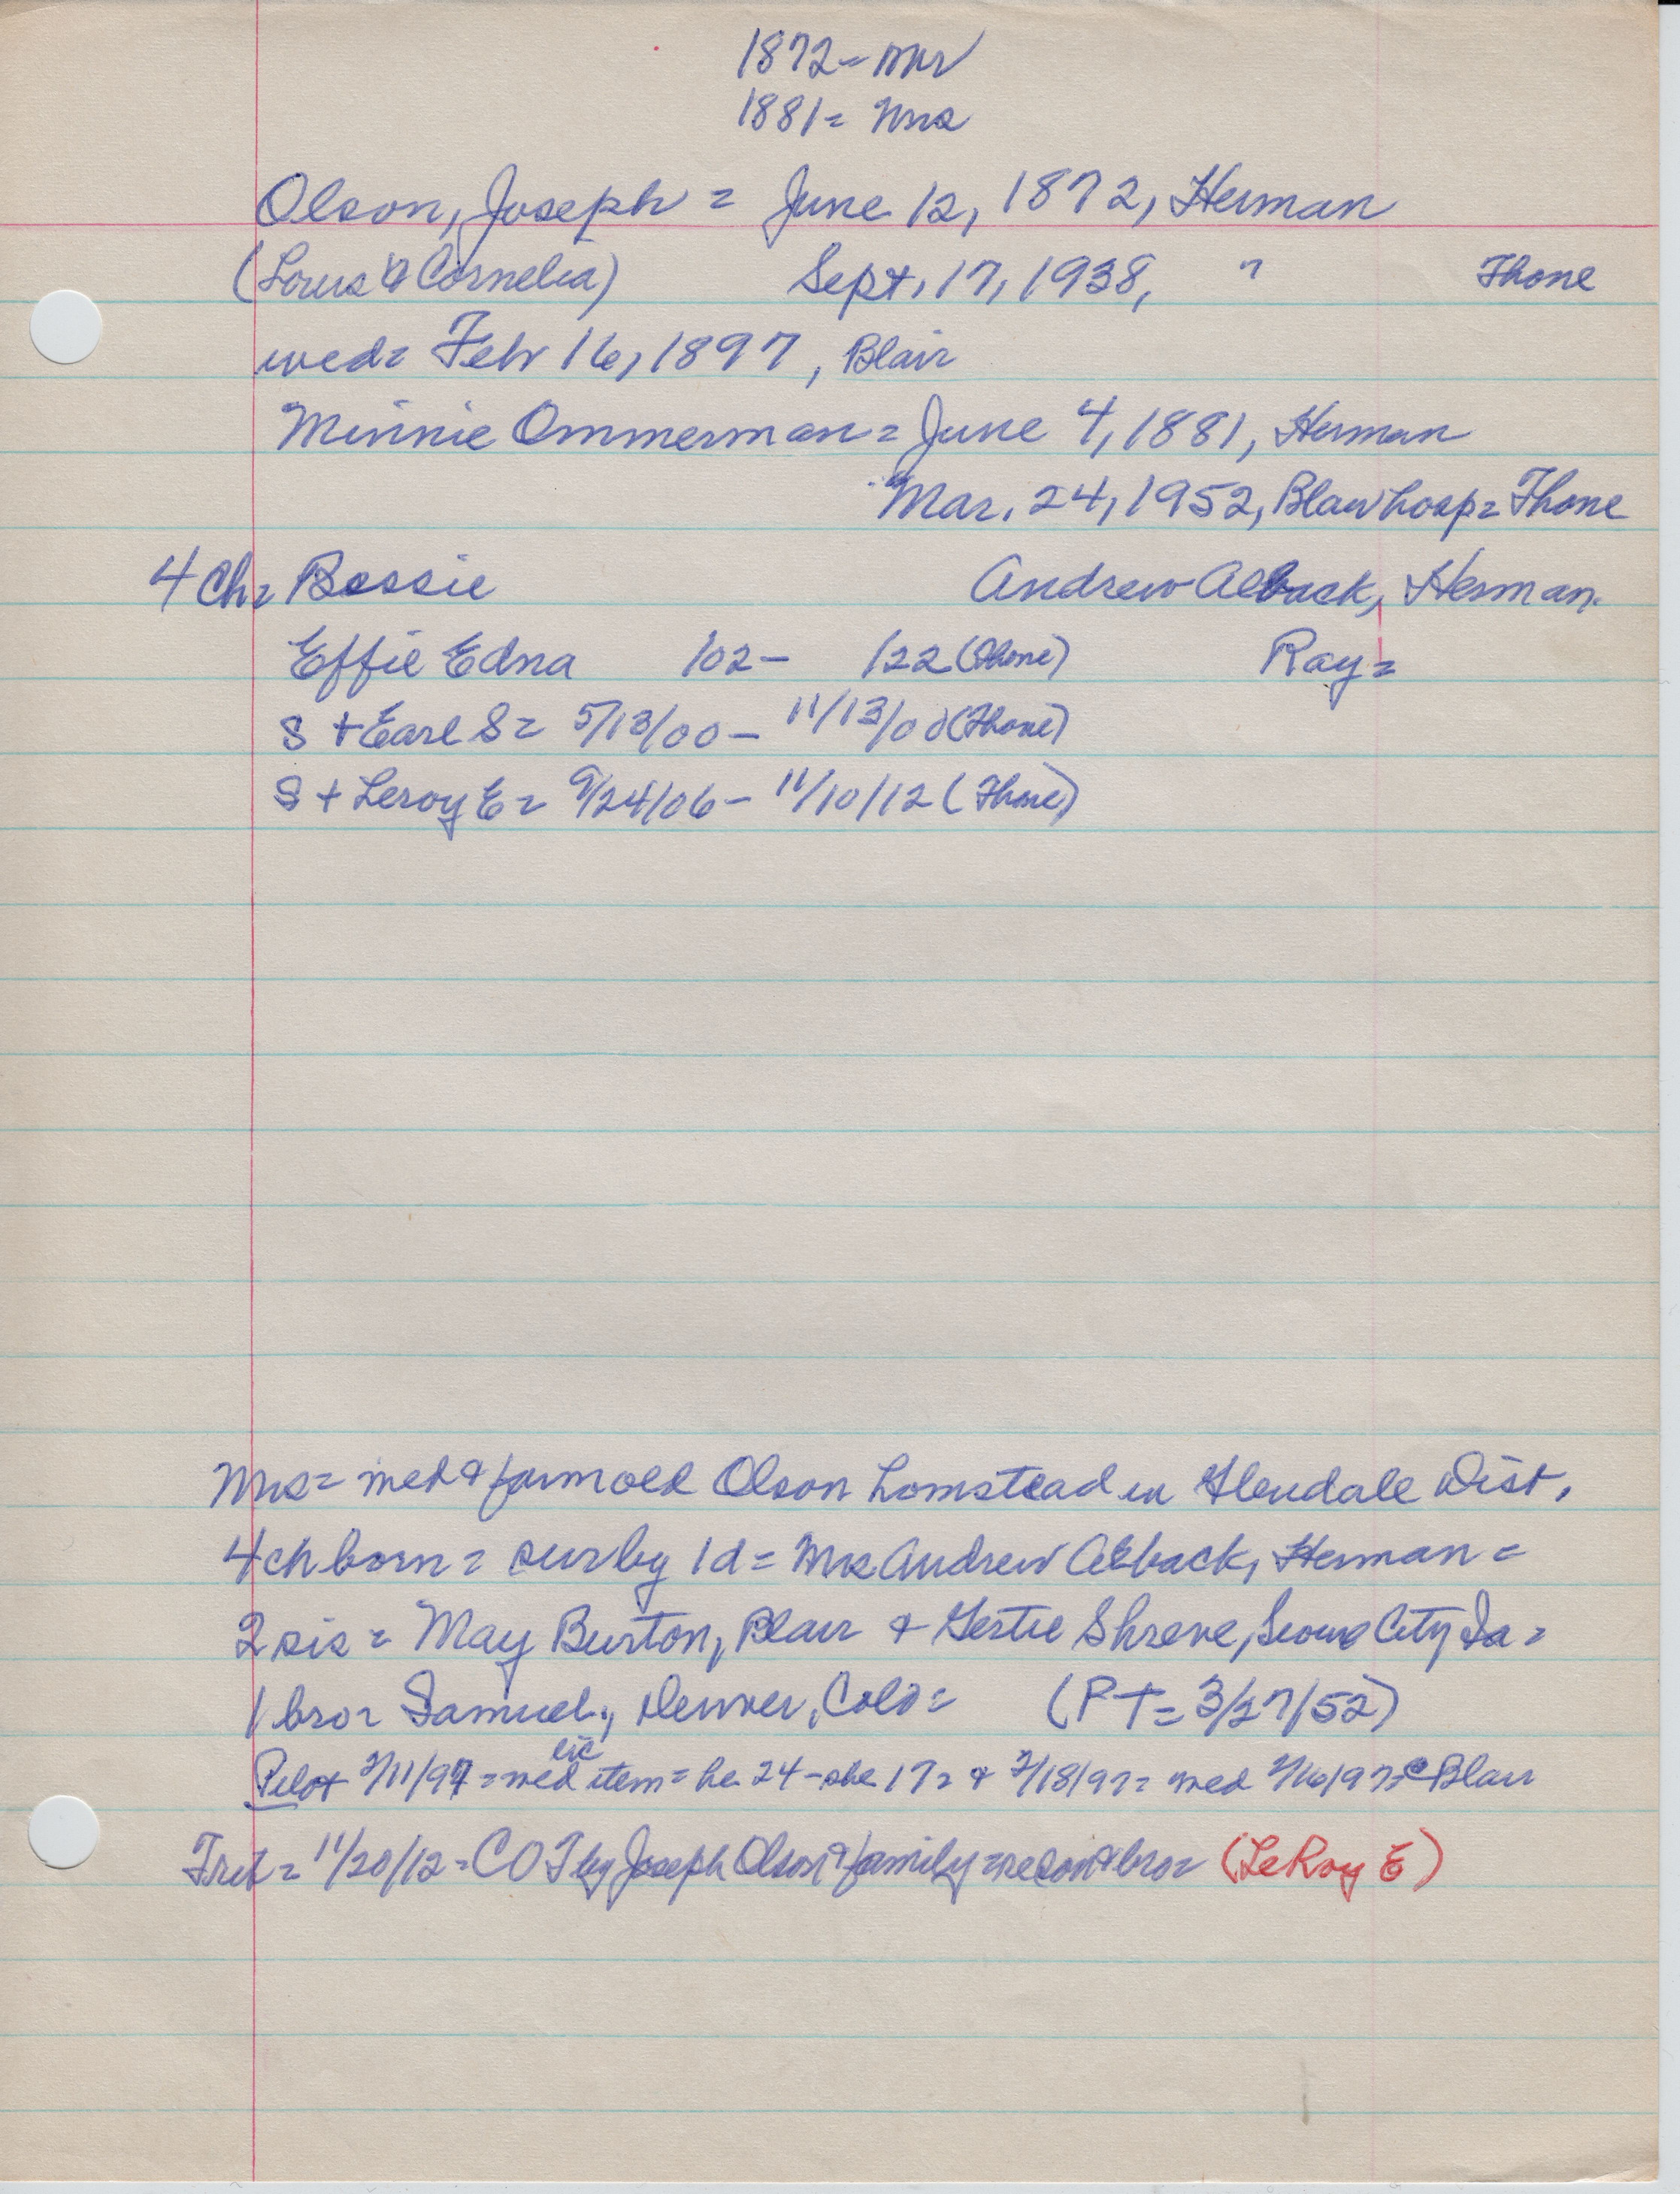 1872 - Mr
1881 = Mrs
Olson, Joseph = June 12, 1872, Herman
(Louis & Cornelia) Sept. 17, 1938, " Thone
wed = Feb 16, 1897, Blair
Minnie Ommerman = June 4, 1881, Herman
Mar. 24, 1952, Blair hosp = Thone
4 Ch = Bessie Andrew Alback, Herman.
Effie Edna 1/02 - 1/22 (Thone) Ray =
S + Earl S = 5/13/00 - 11/13/00 (Thone)
S + Leroy E = 9/24/06 - 11/10/12 (Thone)
Mrs = wed & farm old Olson homstead in Glendale Dist.
4 ch born = sur by 1 d = Mrs Andrew Alback, Herman =
2 sis = May Burton, Blair & Gertie Shreve, Sioux City Ia =
1 bro = Samuel, Denver, Colo = (PT = 3/27/52)
Pilot 2/11/97 = wed lic item = he 24 - she 17 = & 2/18/97 = wed 2/16/97 @ Blair
Trib = 11/20/12 - COT by Joseph Olson & family = re son & bro = (LeRoy E)